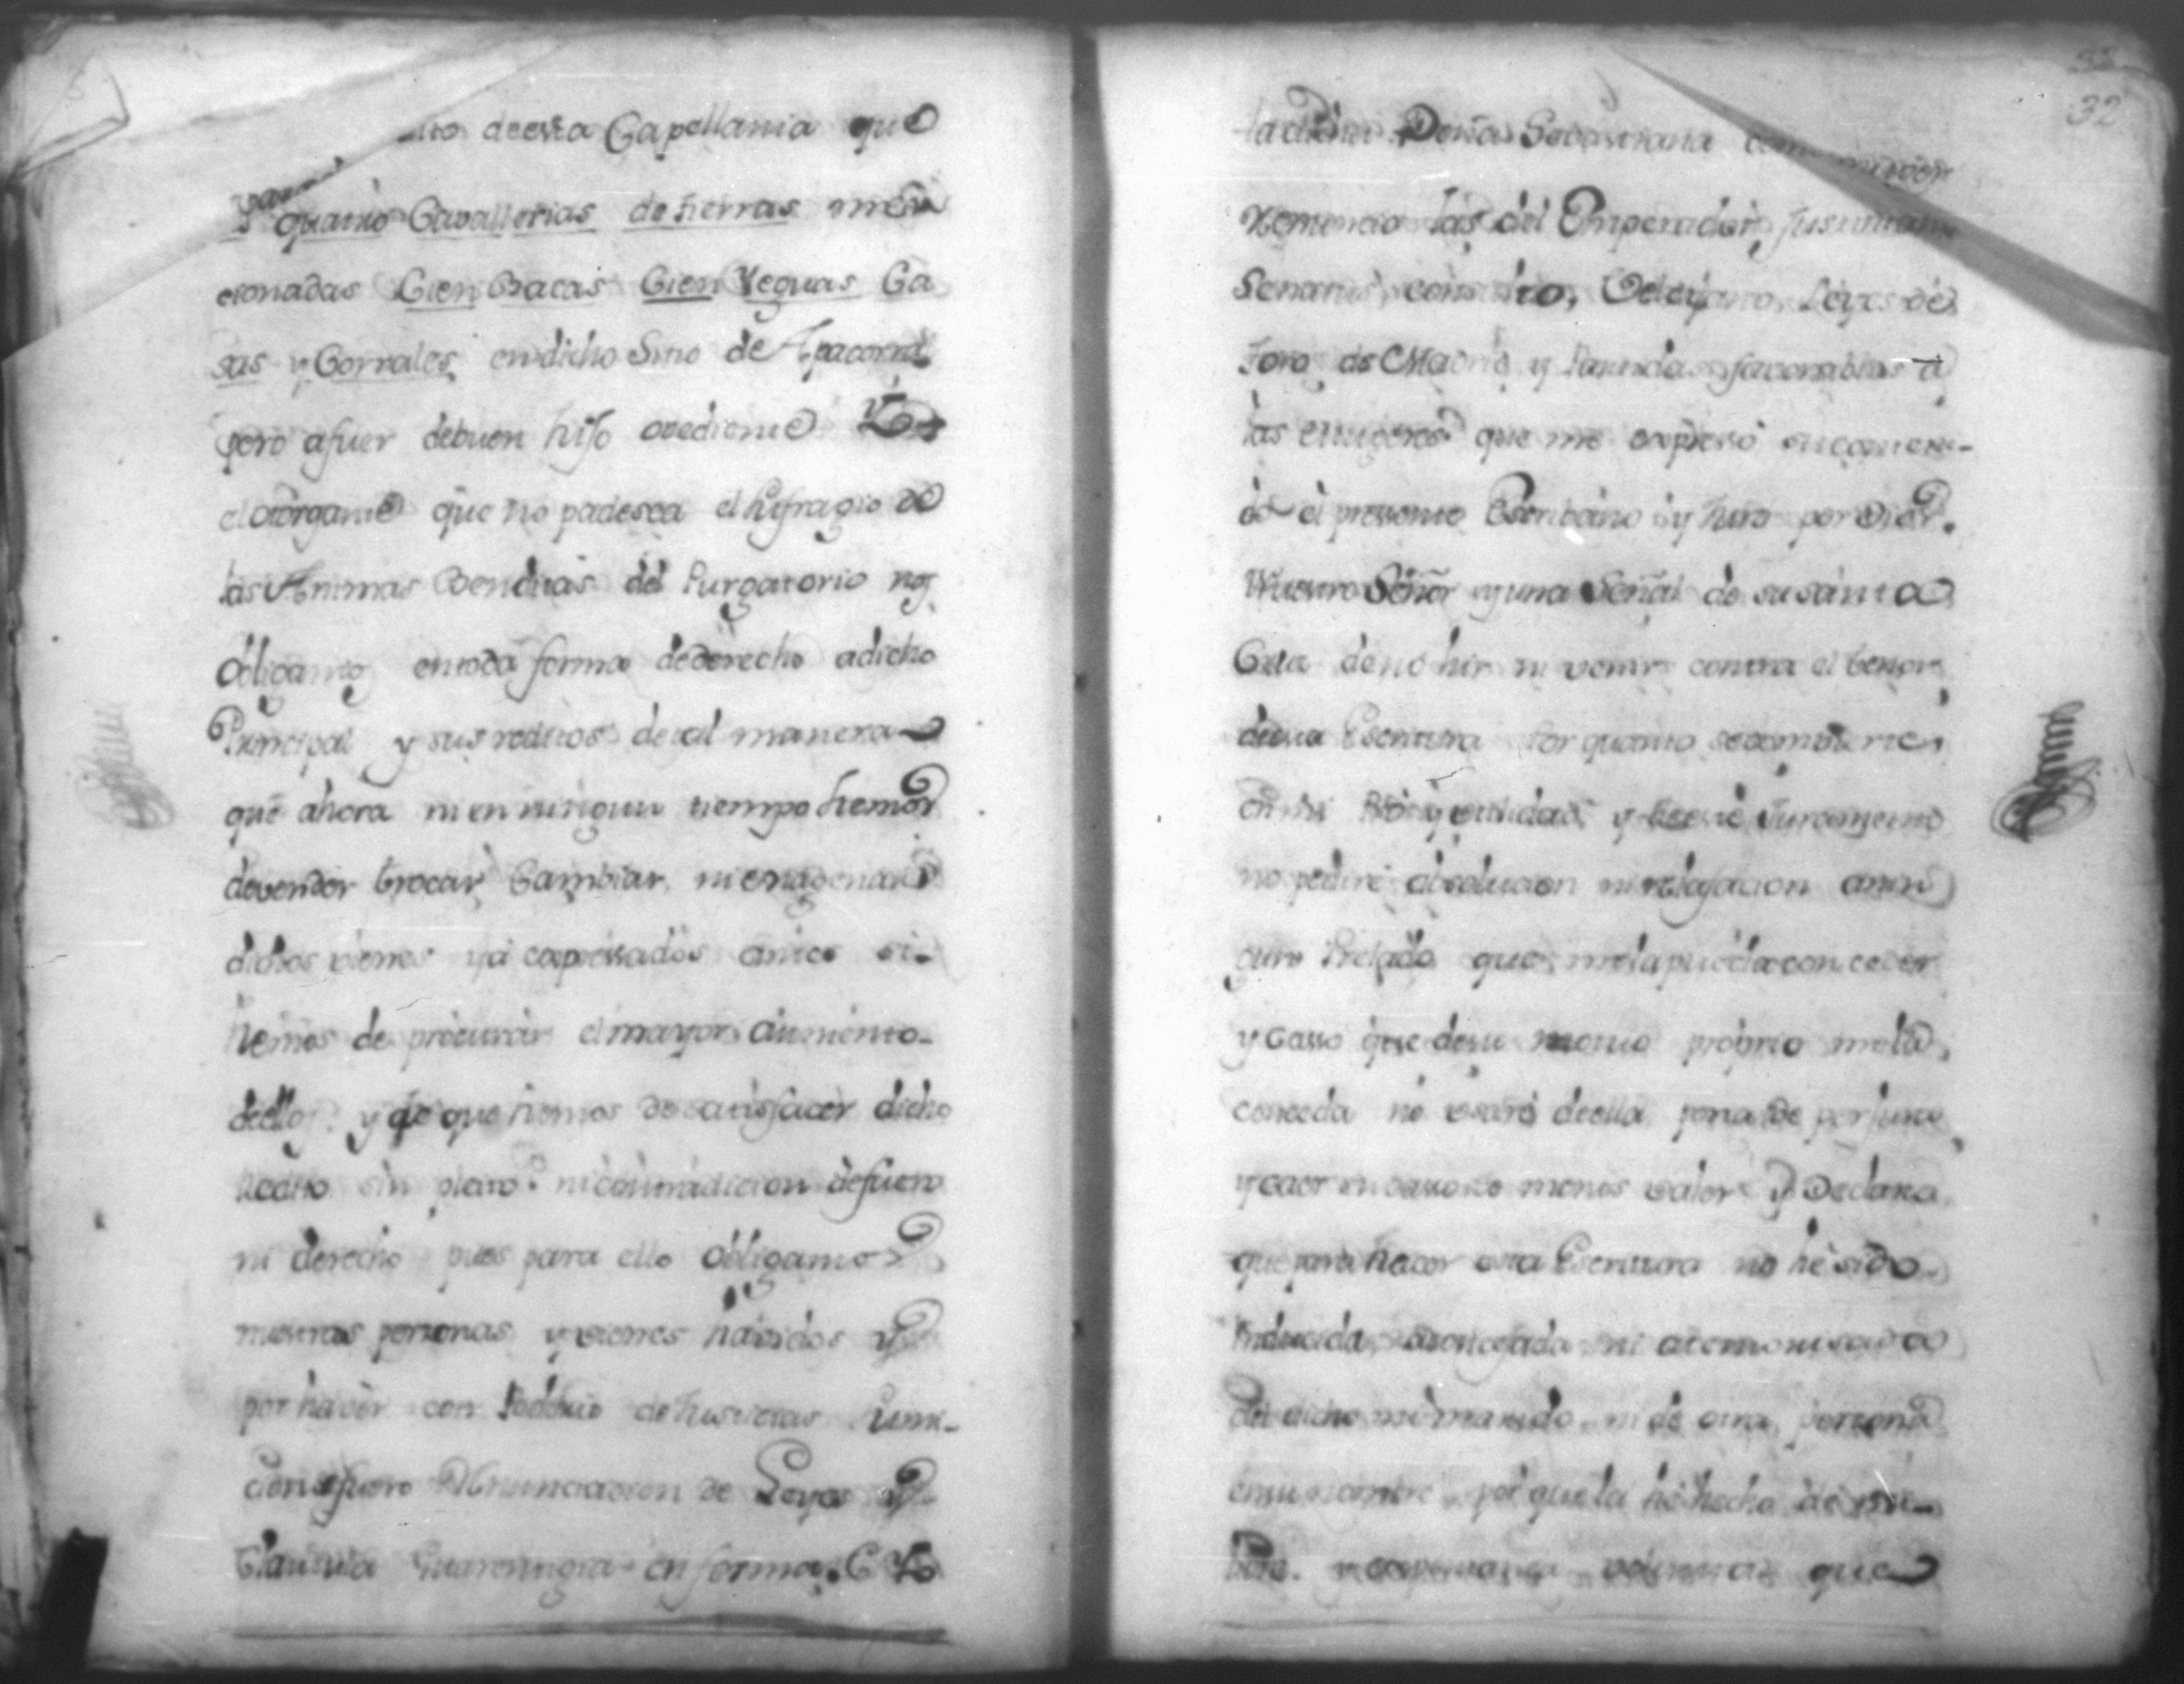 deesta Capellania que
quatro Cavallerias de tierras men
cionadas Cien Bacas Cien Yeguas Ca
sas y Corrales en dicho Sitio de Apacorral
pero afuer debuen hijo ovediente Yo
el otorgante que no padesca el sufragio de
las Animas Benditas del Purgatorio nos
obligamos entoda forma dederecho adicho
Principal y sus reditos detal manera
que ahora ni en ningun tiempo hemos
devender trocar Cambiar ni enagenar
dichos vienes ya expresados antes si
hemos de procurar el mayor aumento
deellos y de que hemos de satisfacer dicho
Redito sin pleito ni contradicion defuero
ni derecho pues para ello obligamos
nuestras personas y vienes havidos y
por haver con Poderio de Justicias Sumi-
cion afuero Renunciacion de Leyes y
Clausula Guarentigia en forma. E Yo
la dicha Doña Sebastiana como muger
Renuncio las del Emperador Justiniano
Senatus consulto, Veleyano, Leyes de
Toro de Madrid y Partida favorables a
las mugeres que me expresó
el presente Escribano y Juro por Dios
Nuestro Señor y una Señal de su santa
Cruz deno hir ni venir contra el tenor
desta Escritura Por quanto seconvierte
en mi Pro y utilidad y deeste Juramento
no pediré absolucion ni relajacion anin
gun Prelado que mela pueda conceder
y Casso que desu motuo proprio mela
conceda no vsaré deella pena de perjura
y caer en casso de menos valer y Declaro
que para hacer esta Escritura no he sido
Inducida, aconsejada ni atemorisada
del dicho mi marido ni de otra persona
ensu nombre por quela he hecho de mi
libre y espontanea voluntad que
33
32